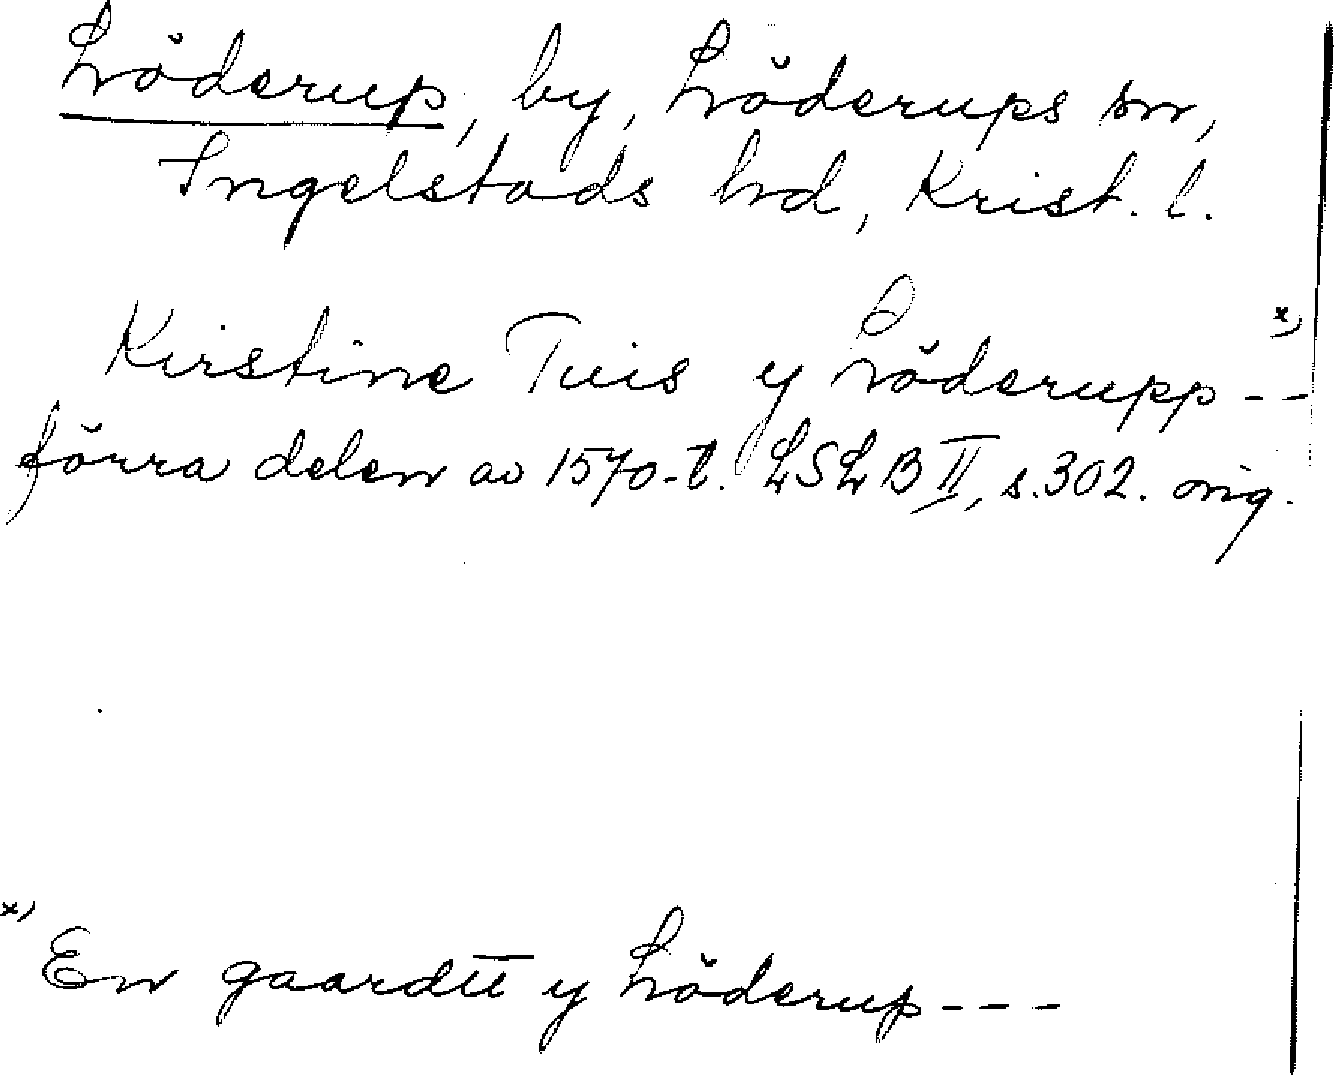 Löderup, by, Löderups sn,
Ingelstads hd, Krist. l.
Kirstine Tuis y Löderupp -- x)
förra delen av 1570-t. LSLB II, s. 302. orig.
x) En gaardtt y Löderup ---